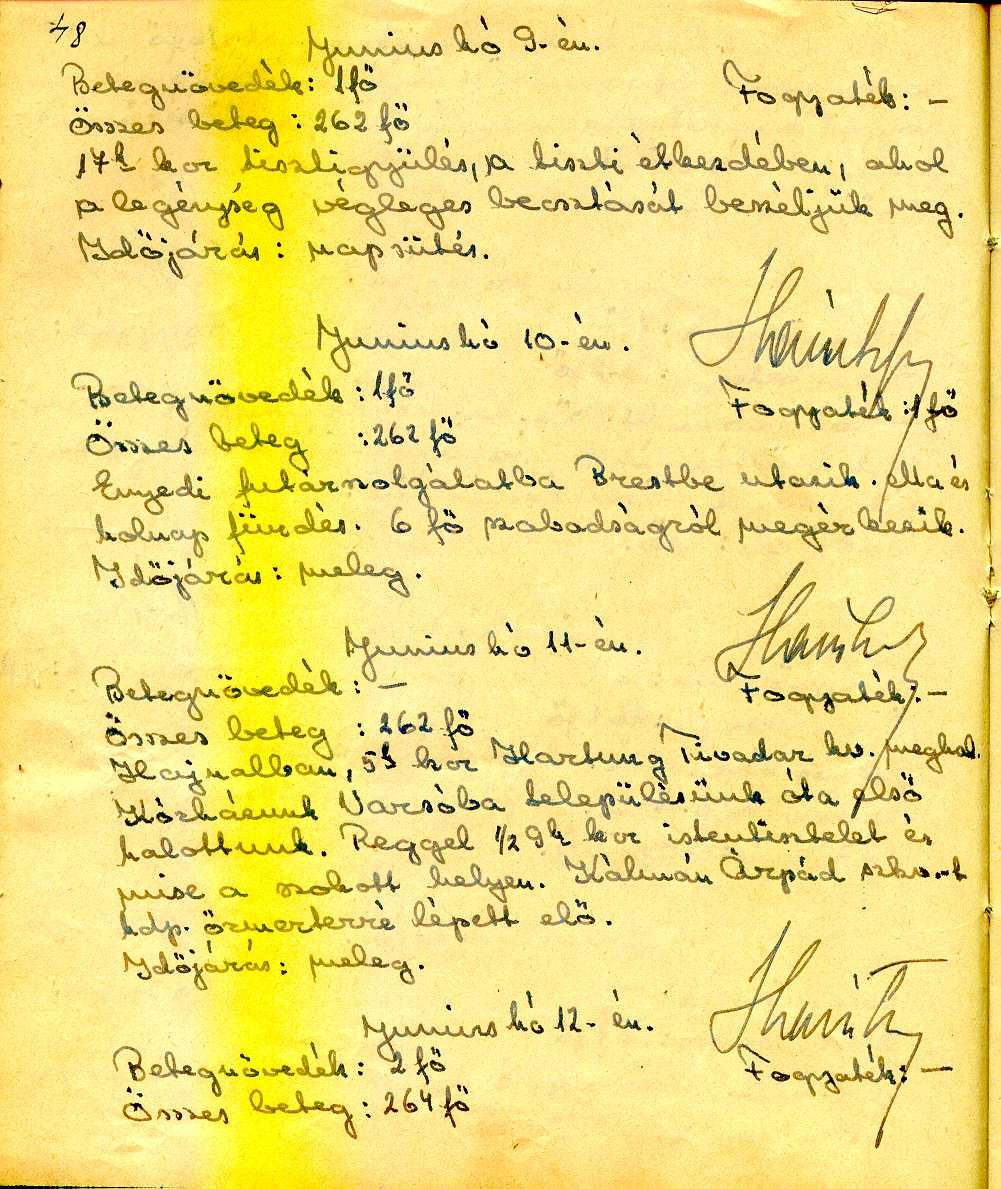 48
Junius hó 9-én.
Betegnövedék: 1 fő Fogyaték: —
Összes beteg: 262 fő
17h kor tisztigyülés, a tiszti étkezdében, ahol
a legénység végleges beosztását beszéljük meg.
Időjárás: napsütés.
Junius hó 10-én.
Betegnövedék: 1 fő Fogyaték: 1 fő
Összes beteg : 262 fő
Enyedi futárszolgálatba Brestbe utazik. Ma és
holnap fürdés. 6 fő szabadságról megérkezik.
Időjárás: meleg.
Junius hó 11-én.
Betegnövedék: — Fogyaték: —
Összes beteg : 262 fő
Hajnalban, 5h kor Hartung Tivadar hv. meghal.
Kórházunk Varsóba településünk óta első
halottunk. Reggel 1/2 9h kor istentisztelet és
mise a szokott helyen. Kálmán Árpád szkv.-t
hdp. őrmesterré lépett elő.
Időjárás: meleg.
Junius hó 12-én.
Betegnövedék: 2 fő Fogyaték: —
Összes beteg: 264 fő